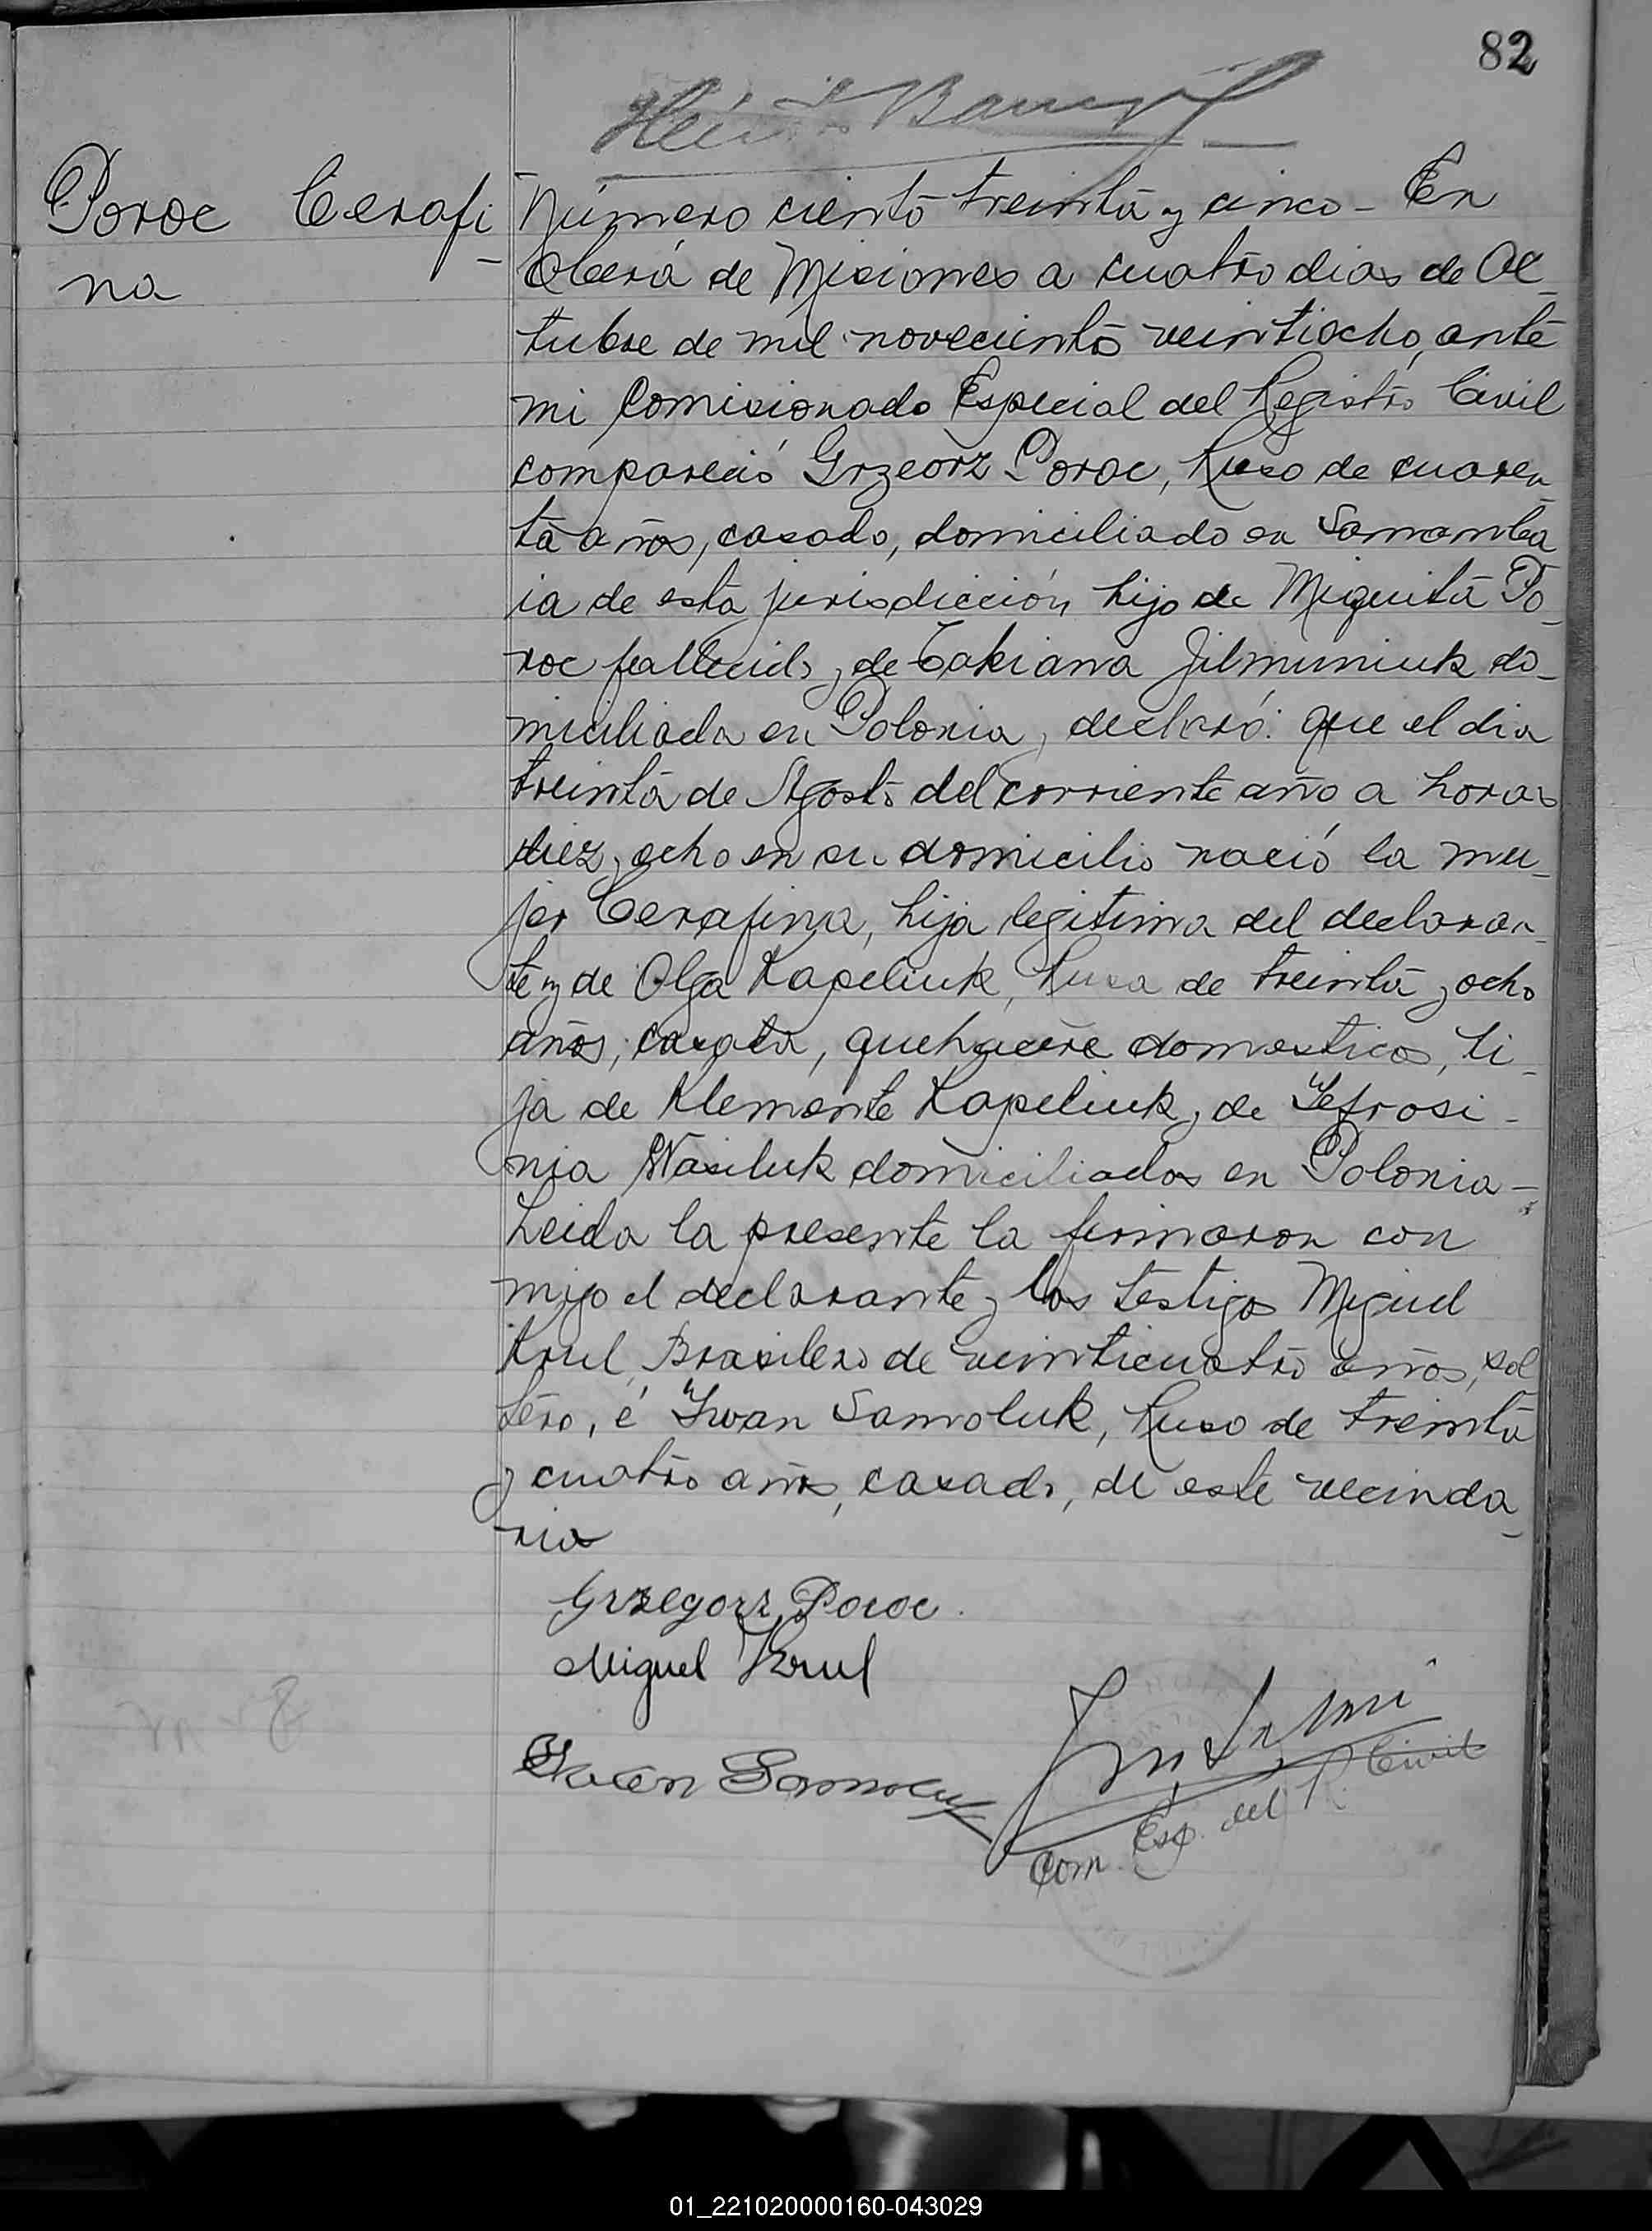 82
Poroc Cerafi-
na
Número ciento treinta y cinco - En
Oberá de Misiones a cuatro dias de Oc-
tubre de mil novecientos veintiocho, ante
mi Comisionado Especial del Registro Civil
compareció Grzeorz Poroc, Ruso de cuaren-
ta años, casado, domiciliado en Samamba
ia de esta jurisdicción hijo de Miquita Po-
roc fallecido y de Takiana Jilmuniuk do-
miciliada en Polonia, declaró: que el dia
treinta de Agosto del corriente año a horas
diez y ocho en su domicilio nació la mu-
jer Cerafina, hija legitima del declaran-
te y de Olga Kapeliuk, Rusa de treinta y ocho
años, casada, quehacere domesticos, hi-
ja de Klemente Kapeliuk y de Yefrosi-
nia Wasiluk domiciliados en Polonia -
Leida la presente la firmaron con
migo el declarante y los testigos Miguel
Krul, Brasilero de veinticuatro años, sol
tero, é Iwan Samoluk, Ruso de treinta
y cuatro años, casado, de este vecinda-
rio
Grzegorz Poroc.
Miguel Krul
Iwan Samoluk
Com. Esp. del R. Civil
01_221020000160-043029